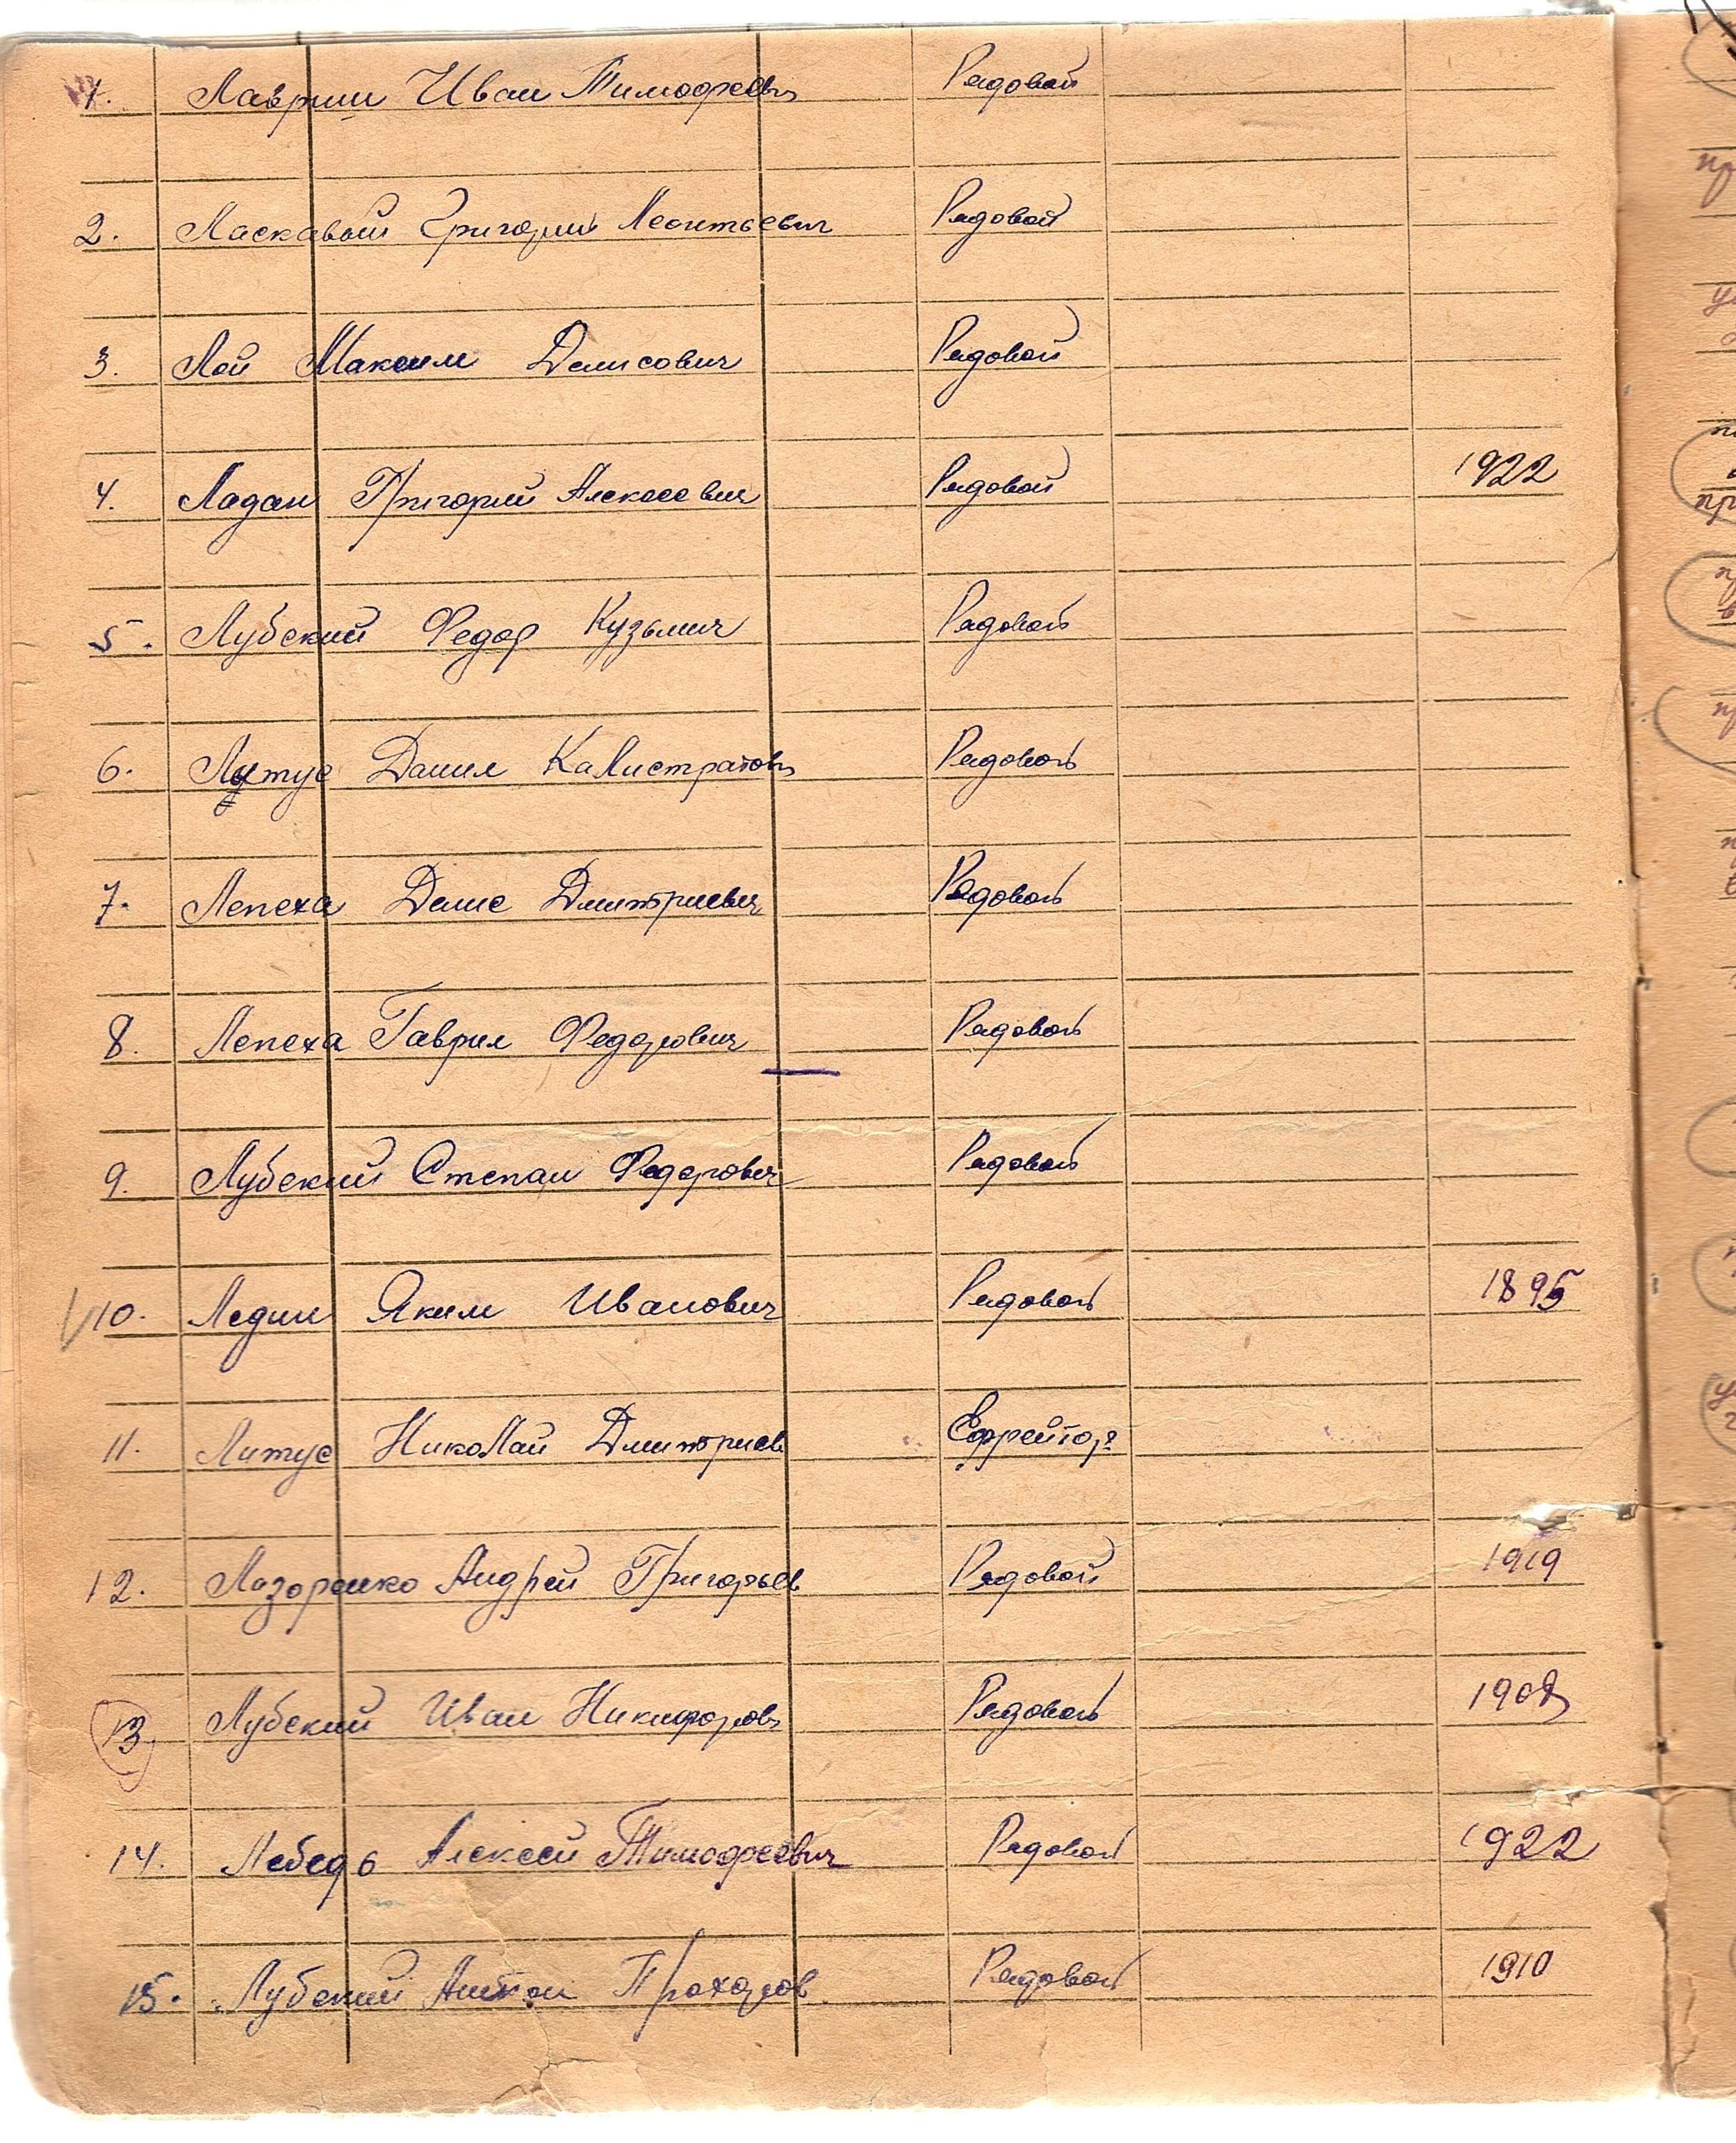 1. Лаврин Иван Тимофеев Рядовой
2. Ласкавый Григорий Леонтьевич Рядовой
3. Лой Максим Денисович Рядовой
4. Ладан Григорий Алексеевич Рядовой 1922
5. Лубский Федор Кузьмич Рядовой
6. Лутус Данил Калистратов Рядовой
7. Лепеха Денис Дмитриевич Рядовой
8. Лепеха Гаврил Федорович Рядовой
9. Лубский Степан Федорович Рядовой
10. Ледин Яким Иванович Рядовой 1895
11. Литус Николай Дмитриев Ефрейтор
12. Лазоренко Андрей Григорьев Рядовой 1919
13. Лубский Иван Никифоров Рядовой 1908
14. Лебедь Алексей Тимофеевич Рядовой 1922
15. Лубский Антон Прохоров Рядовой 1910